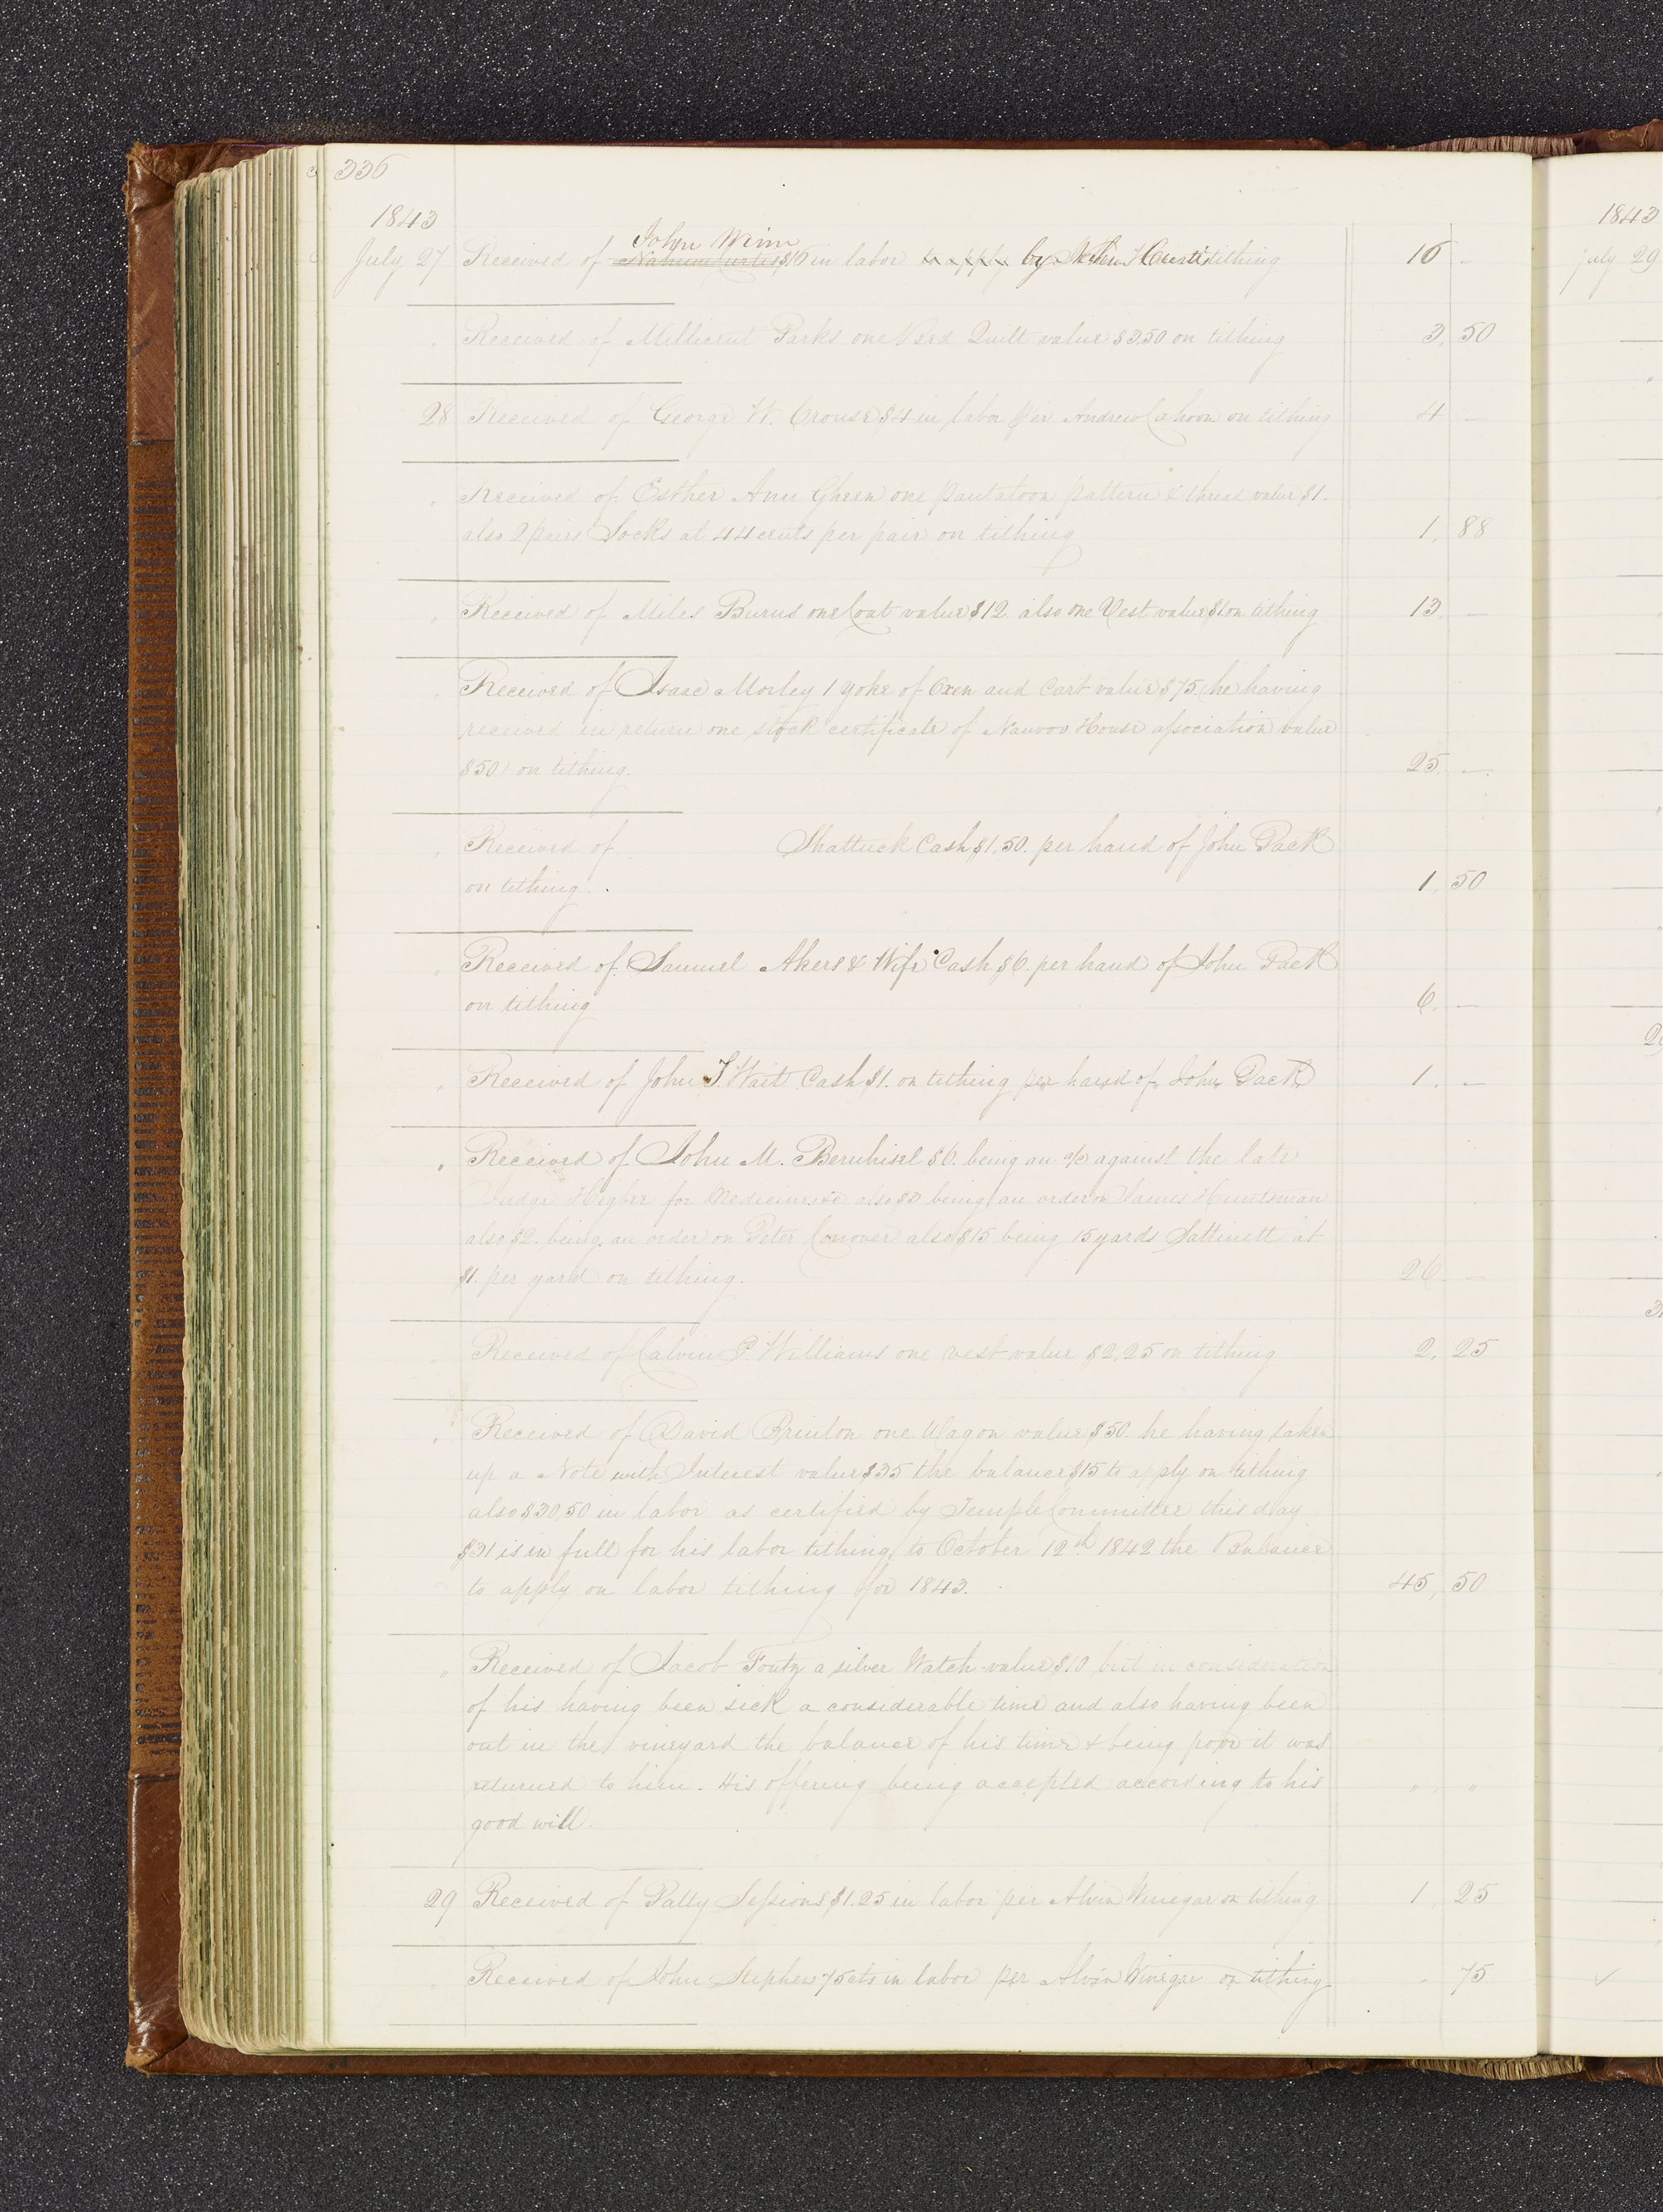 336
1843
John Winn
July 27 Received of Nahum Curtis $16 in labor to apply by Nahum Curtis tithing 16 —
" Received of Millicent Parks one Bed Quilt value $3,50 on tithing 3, 50
28 Received of George W. Crouse $4 in labor per Andrew Cahoon on tithing 4 —
" Received of Esther Ann Gheen one pantatoon pattern & thread value $1.
also 2 pairs Socks at 44 cents per pair on tithing 1, 88
" Received of Miles Burns one Coat value $12. also one Vest value $1 on tithing 13. —
" Received of Isaac Morley 1 yoke of Oxen and Cart value $75 (he having
received in return one stock certificate of Nauvoo House association value
$50) on tithing. 25. —
" Received of Shattuck Cash $1.50. per hand of John Pack
on tithing. 1, 50
" Received of Samuel Akers & Wife Cash $6. per hand of John Pack
on tithing 6. —
" Received of John T. Wait Cash $1. on tithing per hand of John Pack 1. —
" Received of John M. Bernhisel $6. being an a/c against the late
Judge Higbee for Medicines &c also $3 being an order on James Huntsman
also $2. being an order on Peter Conover also $15 being 15 yards Sattinett at
$1. per yard on tithing. 26 —
" Received of Calvin P. Williams one vest value $2,25 on tithing 2, 25
" Received of David Brinton one Wagon value $50. he having taken
up a Note with Interest value $35 the balance $15 to apply on tithing
also $30,50 in labor as certified by Temple Committee this day
$31 is in full for his labor tithing to October 12th 1842 the Balance
to apply on labor tithing for 1843. 45, 50
" Received of Jacob Foutz a silver Watch value $10 but in consideration
of his having been sick a considerable time and also having been
out in the vineyard the balance of his time & being poor it was
returned to him. His offering being accepted according to his " "
good will.
29 Received of Patty Sessions $1.25 in labor per Alvin Winegar on tithing 1, 25
" Received of John Stephens 75 cts in labor per Alvin Winegar on tithing 75
1843
July 29